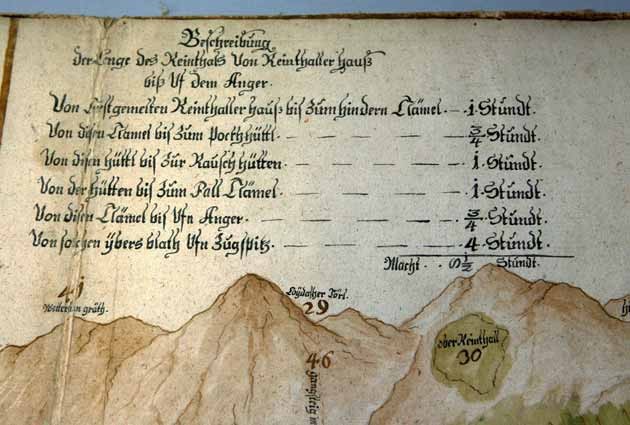 Beschreibung
der Lenge des Reinthals Von Reinthaller hauß
biß Uf dem Anger.
Von Erstgemelten Reinthaller hauß bis Zum hindern Clämel. 1. Stundt.
Von disen Clämel bis Zum Pockhüttl 3/4. Stundt.
Von disen hüttl bis Zur Rausch hütten 1. Stundt.
Von der hütten bis Zum Fall Clämel. 1. Stundt.
Von disen Clämel bis Ufn Anger. 3/4. Stundt.
Von solchen ybers blath Ufn Zugspitz. 4. Stundt.
Macht. 8 1/2 Stundt.
29
ober Reinthall
30
46